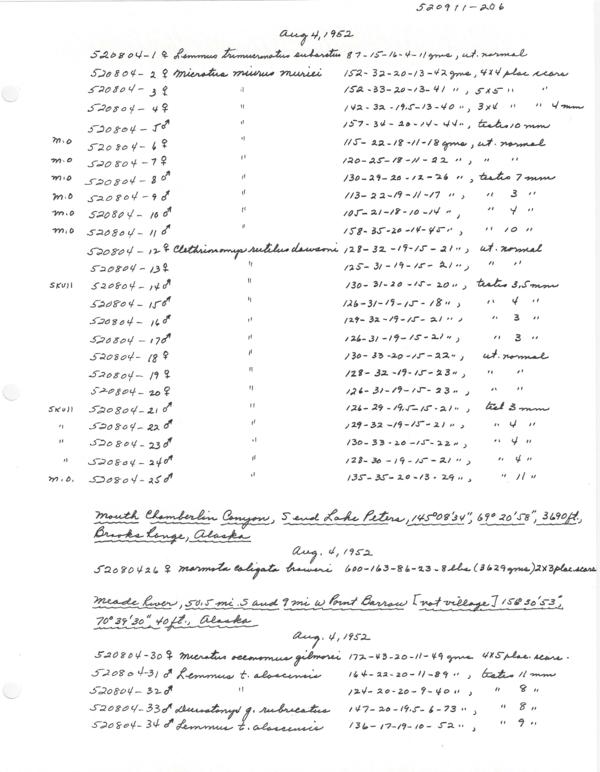 520911-206
Aug 4, 1952
520804-1 ♀ Lemmus trimucronatus subarctus 87-15-16-4-11 gms, ut. normal
520804-2 ♀ Microtus miurus muriei 152-32-20-13-42 gms, 4x4 plac. scars
520804-3 ♀ " 152-33-20-13-41 ", 5x5 " "
520804-4 ♀ " 142-32-19.5-13-40 ", 3x4 " " 4 mm
520804-5 ♂ " 157-34-20-14-44 ", testis 10 mm
M.O 520804-6 ♀ " 115-22-18-11-18 gms, ut. normal
M.O 520804-7 ♀ " 120-25-18-11-22 ", " "
M.O 520804-8 ♂ " 130-29-20-12-26 ", testis 7 mm
M.O 520804-9 ♂ " 113-22-19-11-17 ", " 3 "
M.O 520804-10 ♂ " 105-21-18-10-14 ", " 4 "
M.O 520804-11 ♂ " 158-35-20-14-45 ", " 10 "
520804-12 ♀ Clethrionomys rutilus dawsoni 128-32-19-15-21 ", ut. normal
520804-13 ♀ " 125-31-19-15-21 ", " "
SKULL 520804-14 ♂ " 130-31-20-15-20 ", testis 3.5 mm
520804-15 ♂ " 126-31-19-15-18 ", " 4 "
520804-16 ♂ " 129-32-19-15-21 ", " 3 "
520804-17 ♂ " 126-31-19-15-21 ", " 3 "
520804-18 ♀ " 130-33-20-15-22 ", ut. normal
520804-19 ♀ " 128-32-19-15-23 ", " "
520804-20 ♀ " 126-31-19-15-23 ", " "
SKULL 520804-21 ♂ " 126-29-19.5-15-21 ", test 3 mm
" 520804-22 ♂ " 129-32-19-15-21 ", " 4 "
" 520804-23 ♂ " 130-33-20-15-22 ", " 4 "
" 520804-24 ♂ " 128-30-19-15-21 ", " 4 "
M.O. 520804-25 ♂ " 135-35-20-13-29 ", " 11 "
Mouth Chamberlin Canyon, S end Lake Peters, 145°08'34", 69°20'58", 3690 ft.,
Brooks Range, Alaska
Aug. 4, 1952
52080426 ♀ Marmota caligata broweri 600-163-86-23-8 lbs (3629 gms) 2x3 plac. scars
Meade River, 50.5 mi. S and 9 mi W Point Barrow [not village] 156°30'53",
70°39'30", 40 ft., Alaska
Aug. 4, 1952
520804-30 ♀ Microtus oeconomus gilmorei 172-43-20-11-49 gms 4x5 plac. scars.
520804-31 ♂ Lemmus t. alascensis 164-22-20-11-89 ", testis 11 mm
520804-32 ♂ " 124-20-20-9-40 ", " 8 "
520804-33 ♂ Dicrostonyx g. rubricatus 147-20-19.5-6-73 ", " 8 "
520804-34 ♂ Lemmus t. alascensis 136-17-19-10-52 ", " 9 "